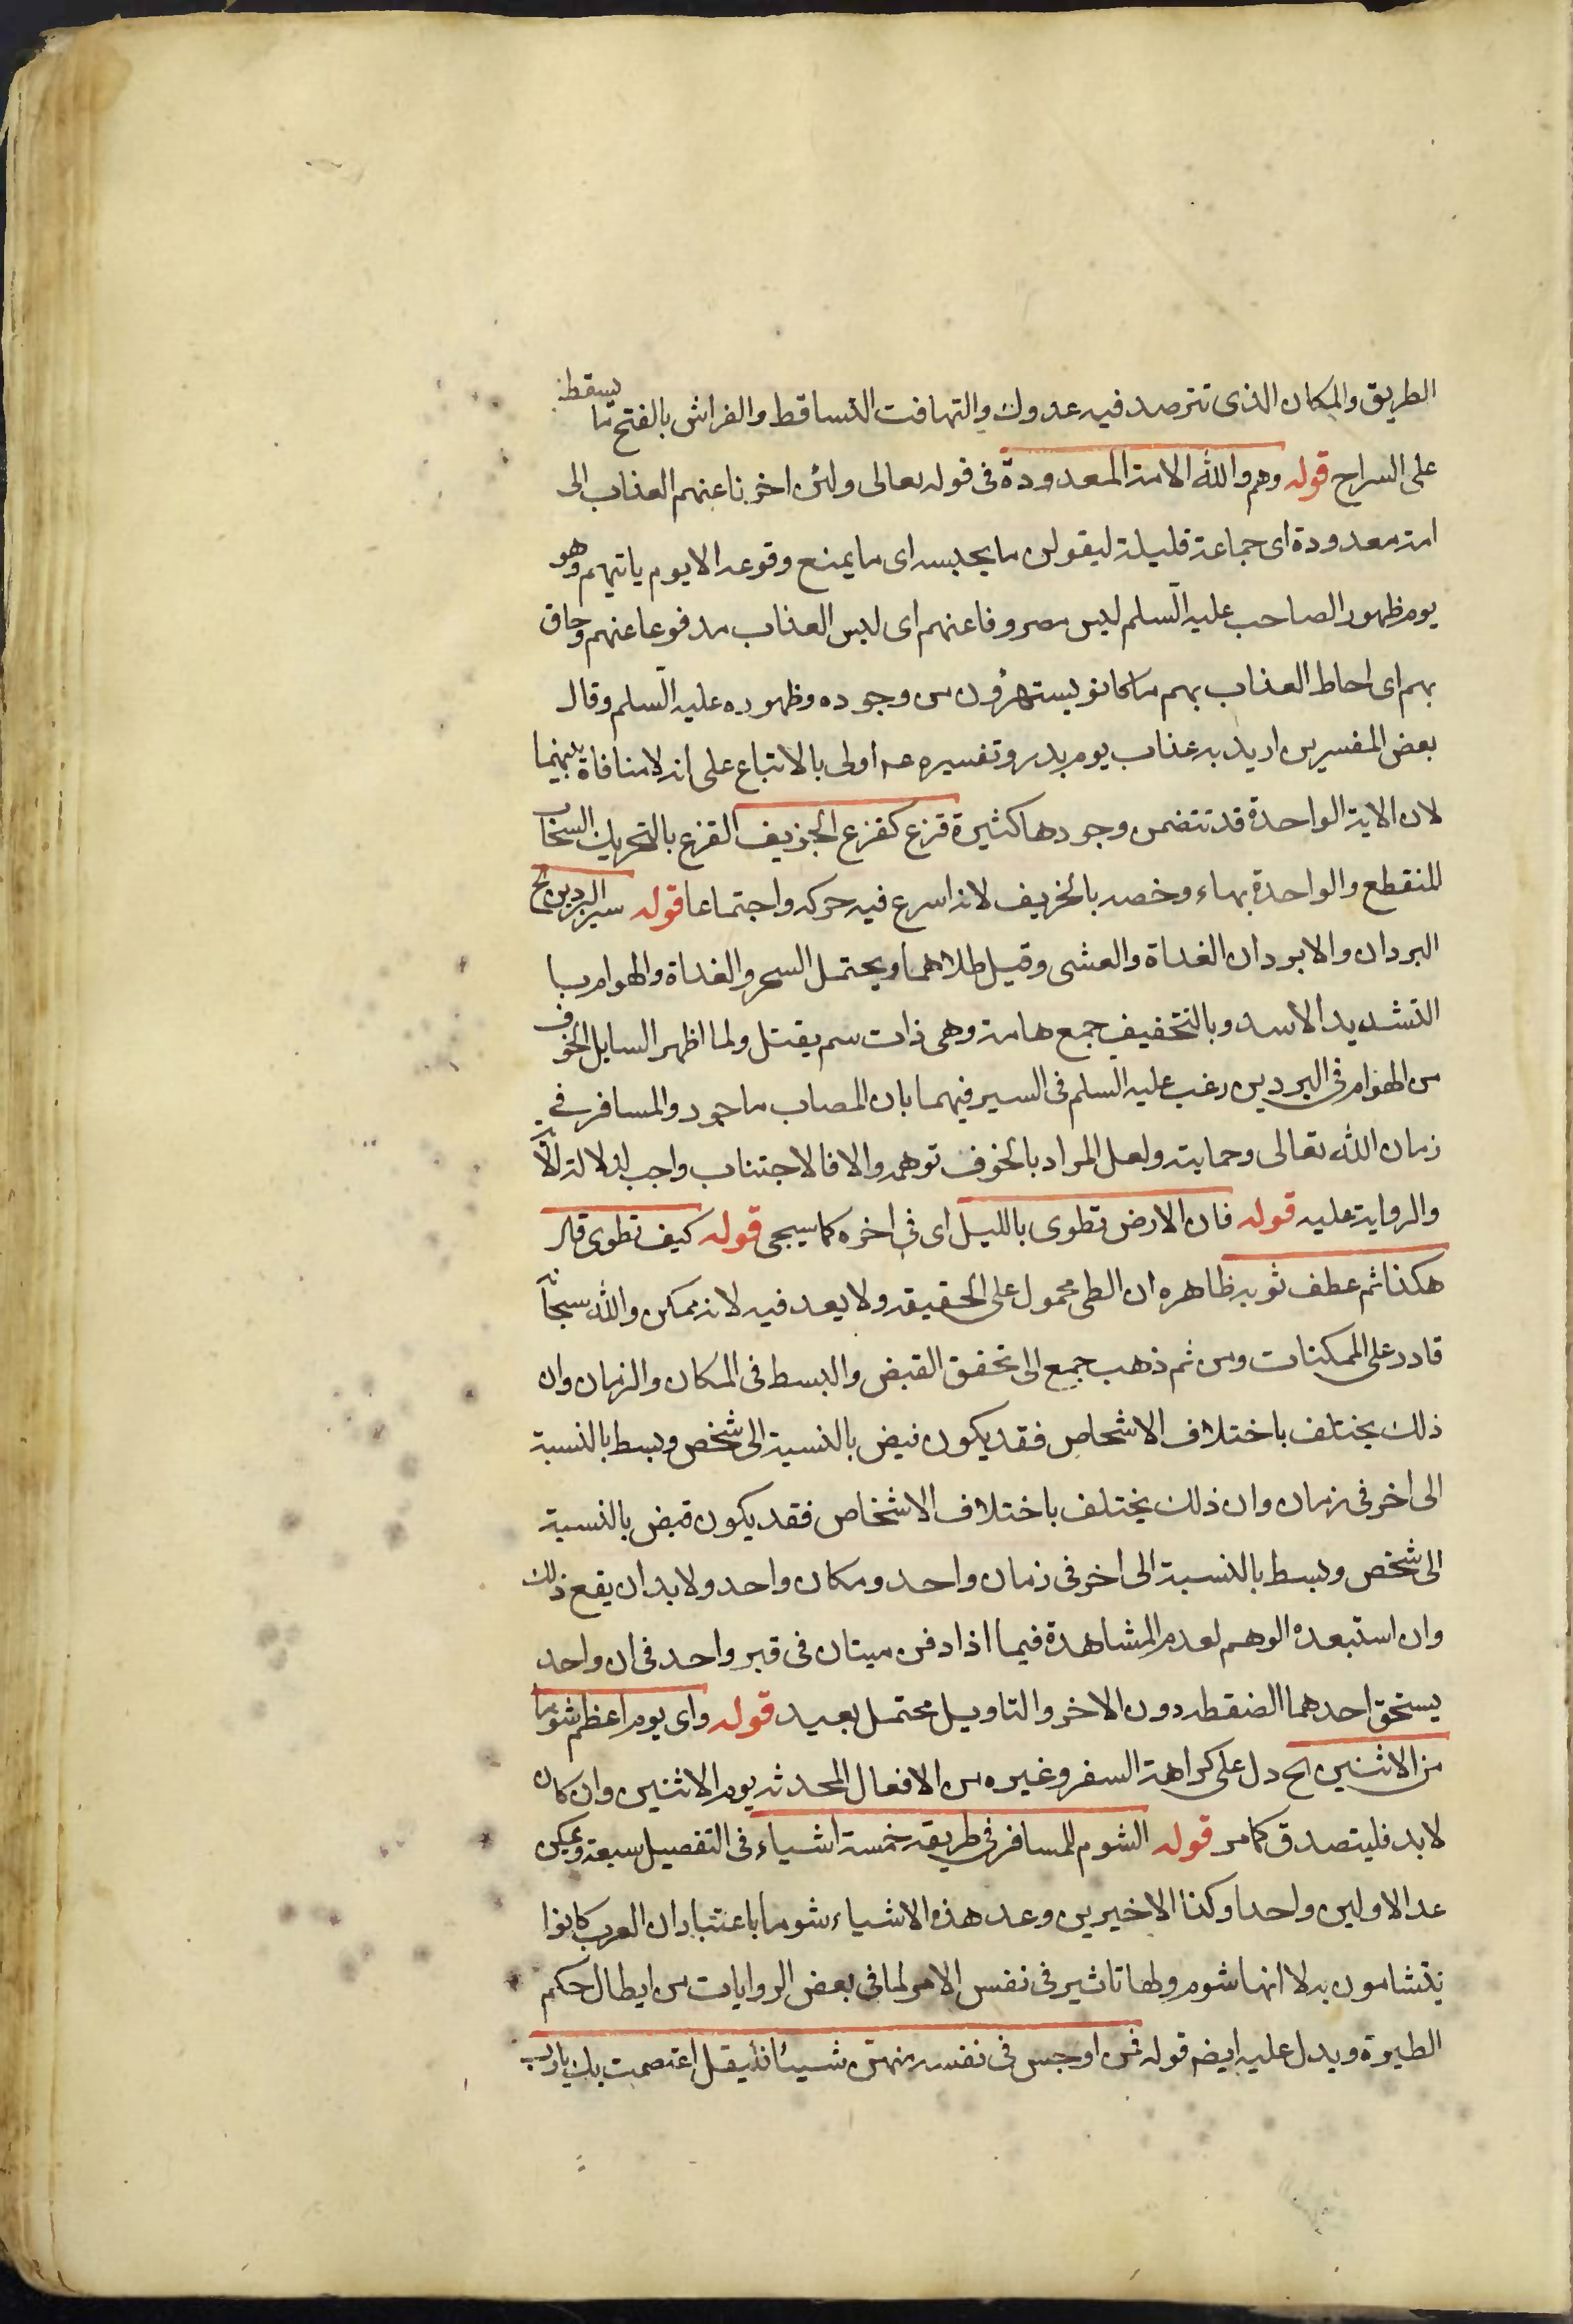 الطريق والمكان الذى تترصد فيه عدوك والتهافت التساقط والفراش بالفتح ما يسقط
على السراج قوله وهم والله الامة المعدودة فى قوله تعالى ولئن اخرنا عنهم العذاب الى
امة معدودة اى جماعة قليلة ليقولن ما يحبسه اى ما يمنع وقوعه الا يوم ياتيهم وهو
يوم ظهور الصاحب عليه السلم ليس مصروفا عنهم اى ليس العذاب مدفوعا عنهم وحاق
بهم اى احاط العذاب بهم ما كانو يستهزؤن من وجوده وظهوره عليه السلم وقال
بعض المفسرين اريد به عذاب يوم بدر وتفسيره عه اولى بالاتباع على انه لا منافاة بينهما
لان الاية الواحدة قد تتضمن وجودها كثيرة قزع كقزع الخزيف القزع بالتحريك السحاب
للنقطع والواحدة بهاء وخصه بالخريف لانه اسرع فيه حركه واجتماعا قوله سير البردين الخ
البردان والابردان الغداة والعشى وقيل ظلاهما ويحتمل السحر والغداة والهوام ببا
التشديد الاسد وبالتخفيف جمع هامة وهى ذات سم يقتل ولما اظهر السايل الخوف
من الهوام فى البردين رغب عليه السلم فى السير فيهما بان المصاب ماجور والمسافر فى
زمان الله تعالى وحمايته ولعل المراد بالخوف توهمه والا فالاجتناب واجب لدلالة الآ
والرواية عليه قوله فان الارض تطوى بالليل اى فى اخره كما سيجى قوله كيف تطوى قال
هكذا ثم عطف ثوبه ظاهره ان الطى محمول على الحقيقه ولا يعد فيه لانه ممكن والله سبحا
قادر على الممكنات ومن ثم ذهب جمع الى تحقق القبض والبسط فى المكان والزمان وان
ذلك يختلف باختلاف الاشحاص فقد يكون نبض بالنسبة الى شخص وبسط بالنسبة
الى اخر فى زمان وان ذلك يختلف باختلاف الاشخاص فقد يكون قبض بالنسبة
الى شخص وبسط بالنسبة الى اخر فى زمان واحد ومكان واحد ولا بد ان يقع ذلك
وان استبعده الوهم لعدم المشاهدة فيما اذا دفن ميتان فى قبر واحد فى ان واحد
يستحق احدهما الضقطه دون الاخر والتاويل محتمل بعيد قوله واى يوم اعظم شوما
من الاثنين الح دل على كراهة السفر وغيره من الافعال المحدثه يوم الاثنين وان كان
لا بد فليتصدق كما مر قوله الشوم للمسافر فى طريقه خمسة اشياء فى التفصيل سبعة ويمكن
عد الاولين واحدا وكذا الاخيرين وعد هذه الاشياء شوما باعتبار ان العرب كانوا
يتشامون به لا انها شوم ولها تاثير فى نفس الامر لما فى بعض الروايات من ابطال حكم
الطيرة ويدل عليه ايضم قوله فمن اوجس فى نفسه منهن شيئا فليقل اعتصمت بك يا رب